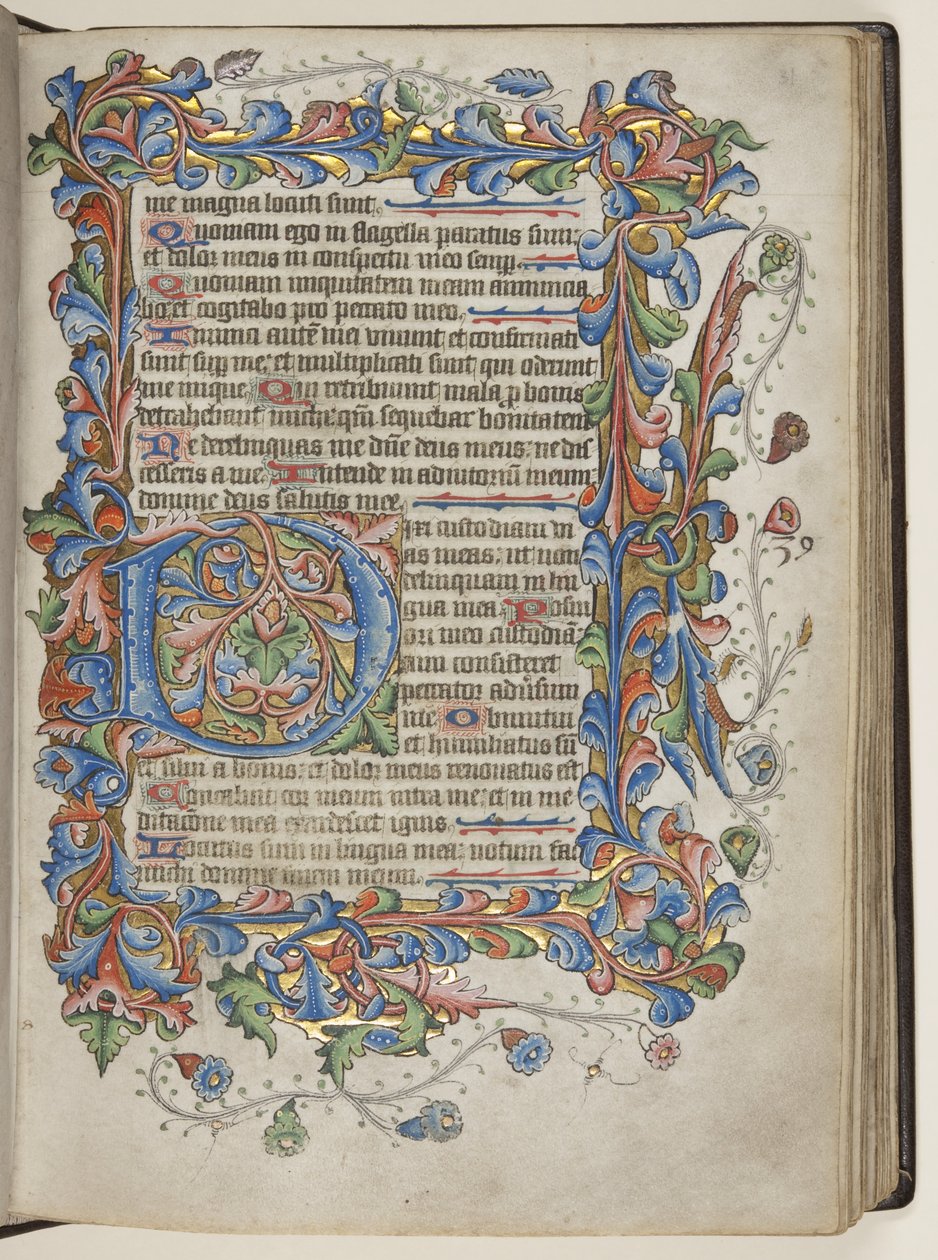 me magna locuti sunt.
Quoniam ego in flagella paratus sum:
et dolor meus in conspectu meo semp.
Quoniam iniquitatem meam annuncia
bo: et cogitabo pro peccato meo.
Inimici autē mei vivunt et confirmati
sunt sup me: et multiplicati sunt qui oderunt
me inique. Qui retribuunt mala p bonis
detrahebant michi: qm̄ sequebar bonitatem
Ne derelinquas me dn̄e deus meus: ne dis
cesseris a me. Intende in adiutoriū meum:
domine deus salutis mee.
Dixi custodiam vi
as meas: ut non
delinquam in lin
gua mea. Posui
ori meo custodiā:
cum consisteret
peccator adūsum
me. Obmutui
et humiliatus sū
et silui a bonis: et dolor meus renovatus est
Concaluit cor meum intra me: et in me
ditacione mea exardescet ignis.
Locutus sum in lingua mea: notum fac
michi domine finem meum.
39